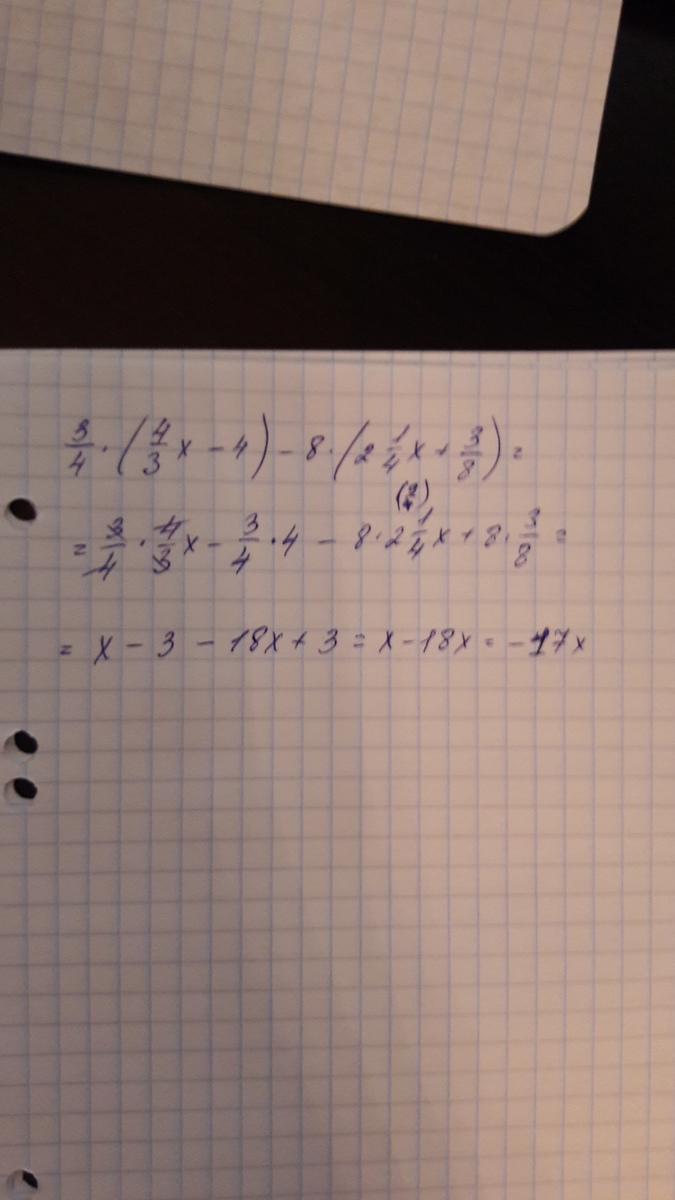 3/4 · (4/3 x - 4) - 8 · (2 1/4 x + 3/8) =
(2)
= 3/4 · 4/3 x - 3/4 · 4 - 8 · 2 1/4 x + 8 · 3/8 =
= x - 3 - 18x + 3 = x - 18x = -17x